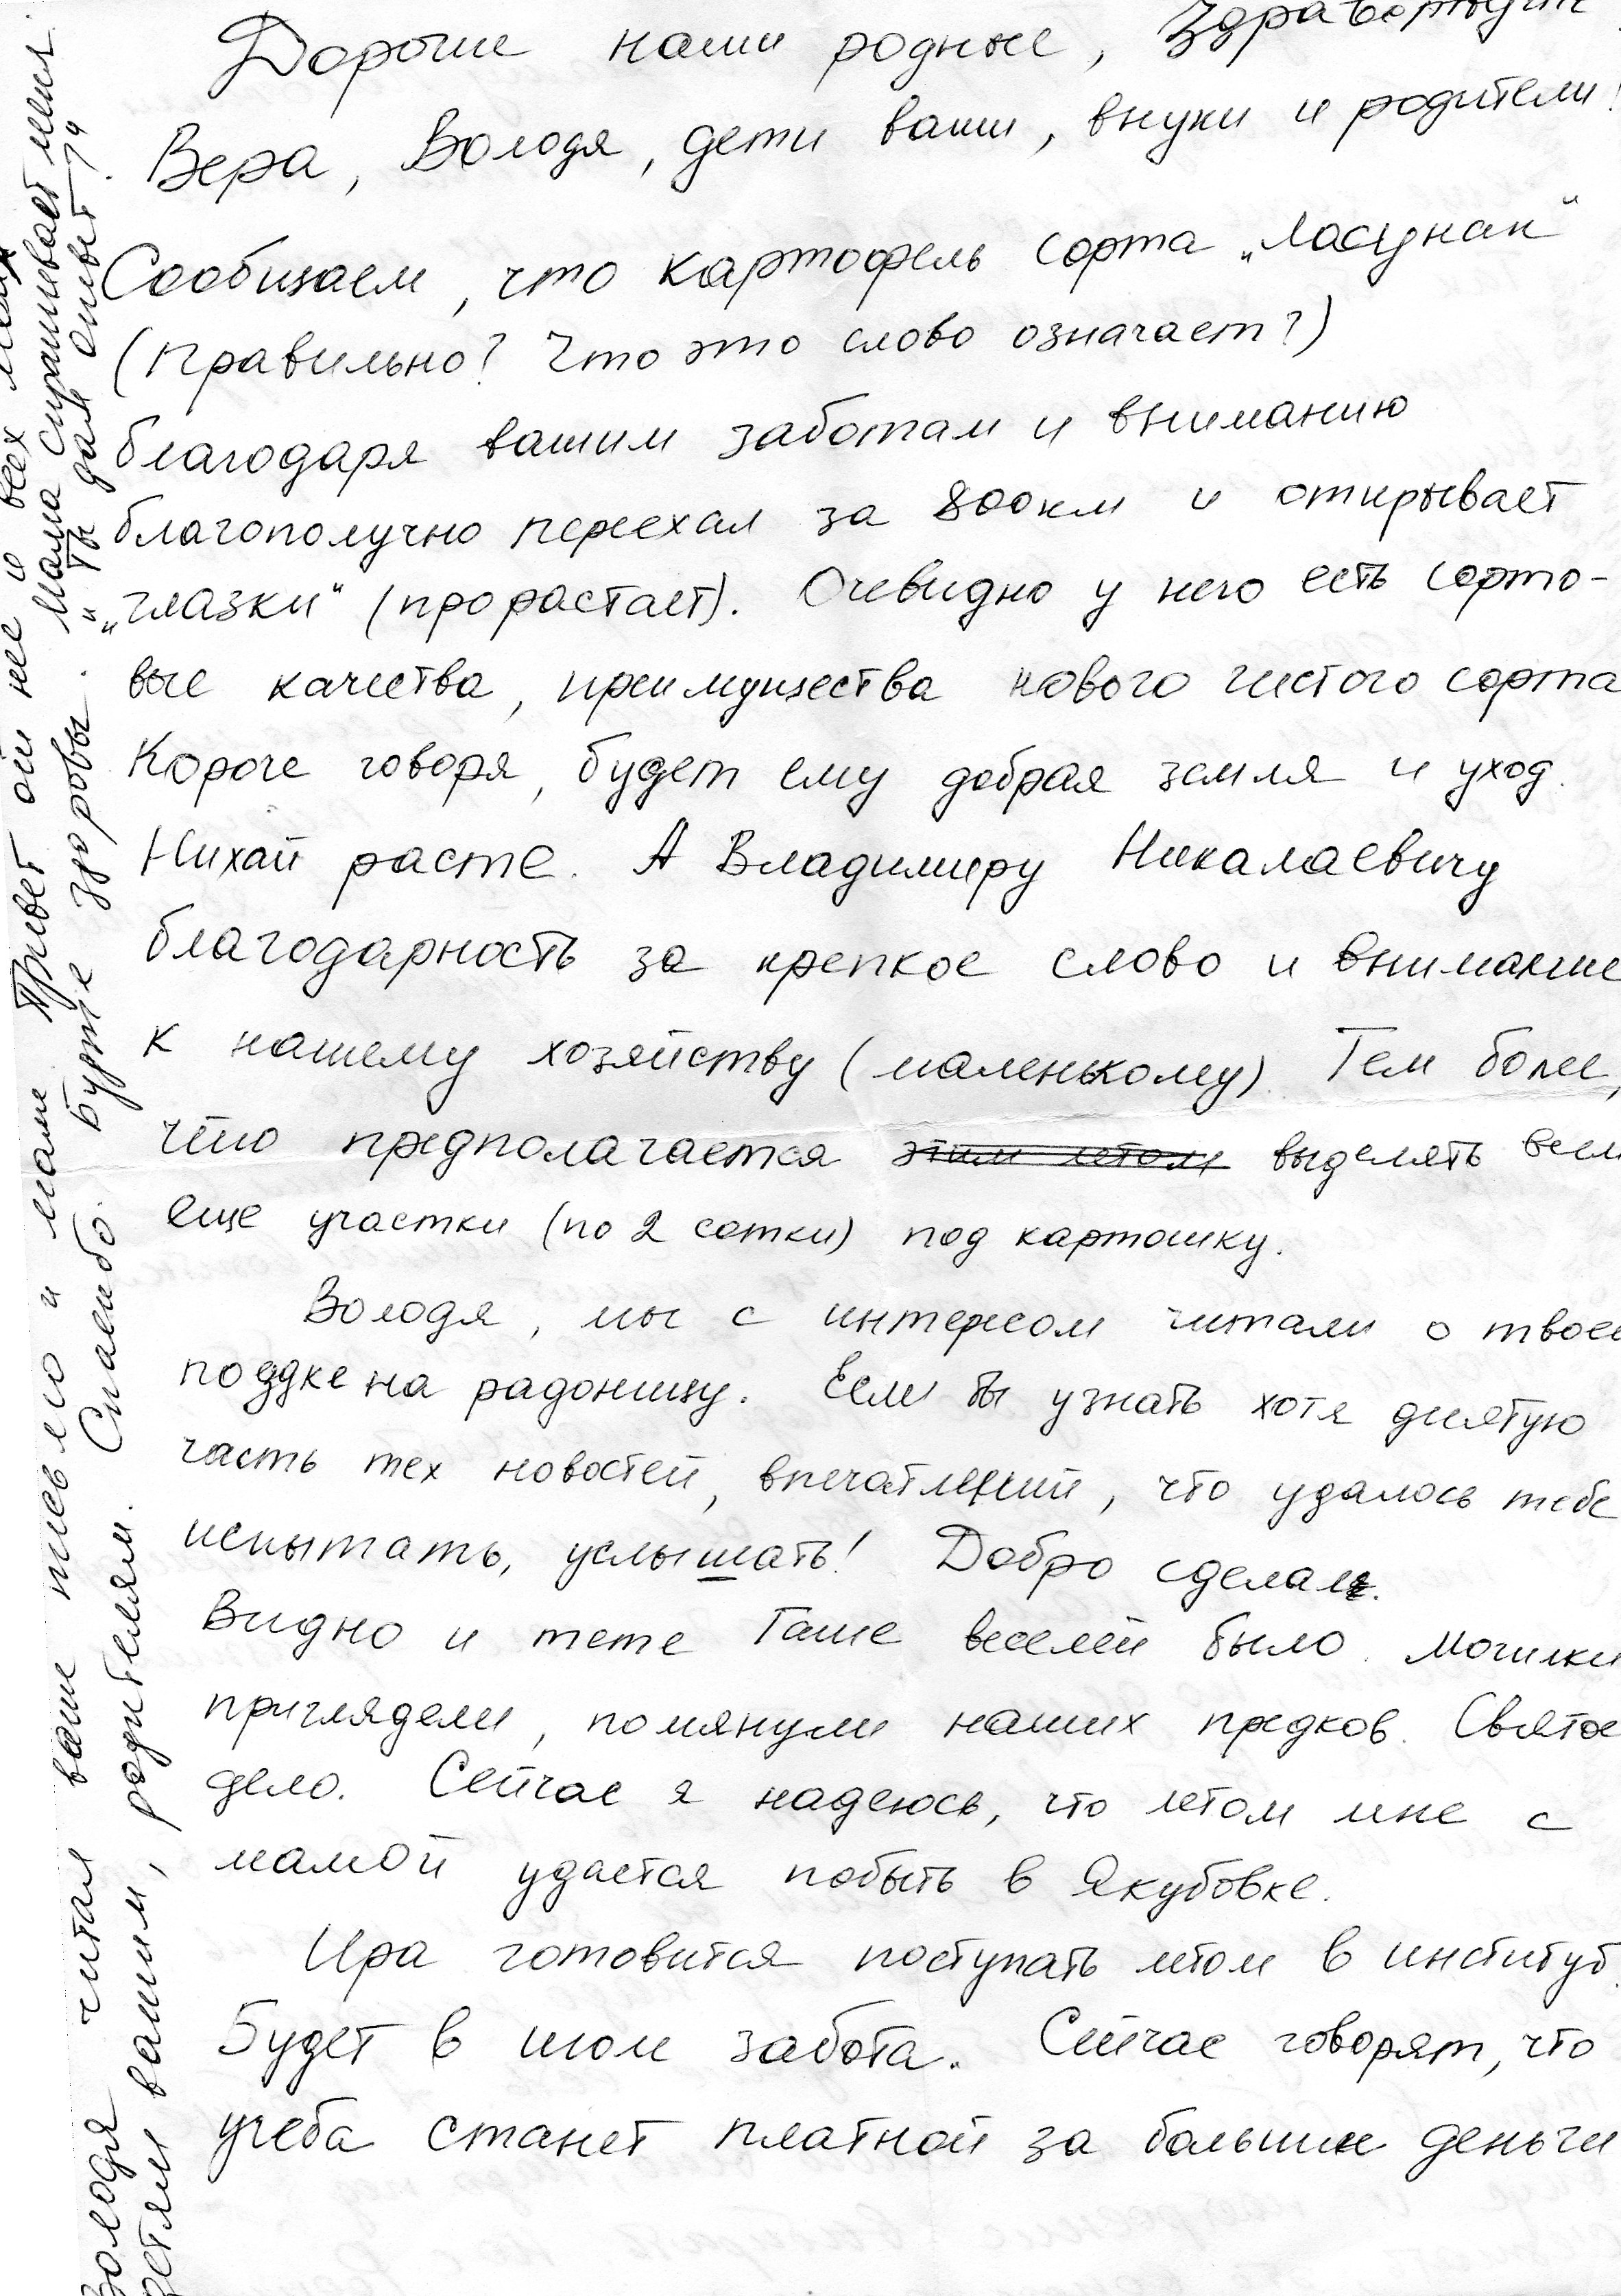 Дорогие наши родные, Здравствуйте
Вера, Володя, дети ваши, внуки и родители!
Сообщаем, что картофель сорта „Ласунак“
(правильно? Что это слово означает?)
благодаря вашим заботам и вниманию
благополучно переехал за 800км и открывает
„глазки“ (прорастает). Очевидно у него есть сорто-
вые качества, преимущества нового чистого сорта
Короче говоря, будет ему добрая земля и уход.
Нихай расте. А Владимиру Никалаевичу
благодарность за крепкое слово и внимание
к нашему хозяйству (маленькому). Тем более,
что предполагается этим летом выделять всем
еще участки (по 2 сотки) под картошку.
Володя, мы с интересом читали о твоей
поздке на радоницу. Если бы узнать хотя дисятую
часть тех новостей, впечатлений, что удалось тебе
испытать, услышать! Добро сделал.
Видно и тете Гаше веселей было. Могилки
приглядели, помянули наших предков. Святое
дело. Сейчас я надеюсь, что летом мне с
мамой удастся побыть в Якубовке.
Ира готовится поступать летом в институт.
Будет в том забота. Сейчас говорят, что
учеба станет платной за большие деньги
Володя читал ваше письмо и маме. Привет от нее и всех
детям вашим, родителям. Спасибо. Будте здоровы. Мама спрашивает меня
„Ты дал ответ?“